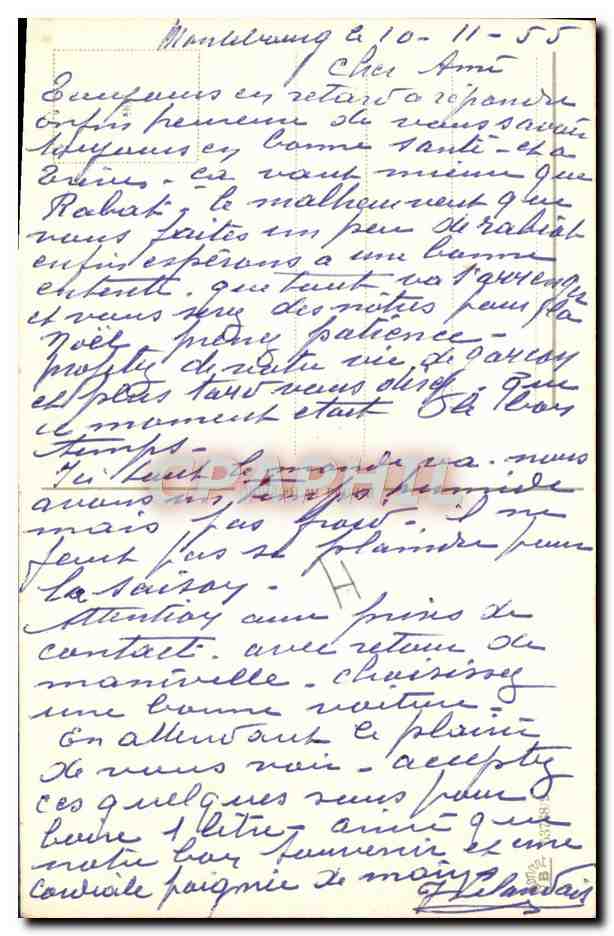 Montebourg le 10-11-55
Cher Ami
Toujours en retard a répondre
enfin heureux de vous savoir
toujours en bonne santé - et a
- ça vaut mieux que
Rabat - le malheur veut que
vous faites un peu de rabiot
enfin espérons a une bonne
entente. que tout va s'arranger
et vous serez des nôtres pour la
Noël prenez patience -
profitez de votre vie de garçon
et plus tard vous direz - que
ce moment etait le bon
temps -
Ici tout le monde va - nous
avons un temps humide
mais pas froid - il ne
faut pas se plaindre pour
la saison -
Attention aux prises de
contact. avec retour de
manivelle - choisissez
une bonne voiture -
En attendant le plaisir
de vous voir - acceptez
ces quelques sous pour
boire 1 litre - ainsi que
notre bon souvenir et une
cordiale poignée de mains
H
CPAPHIL